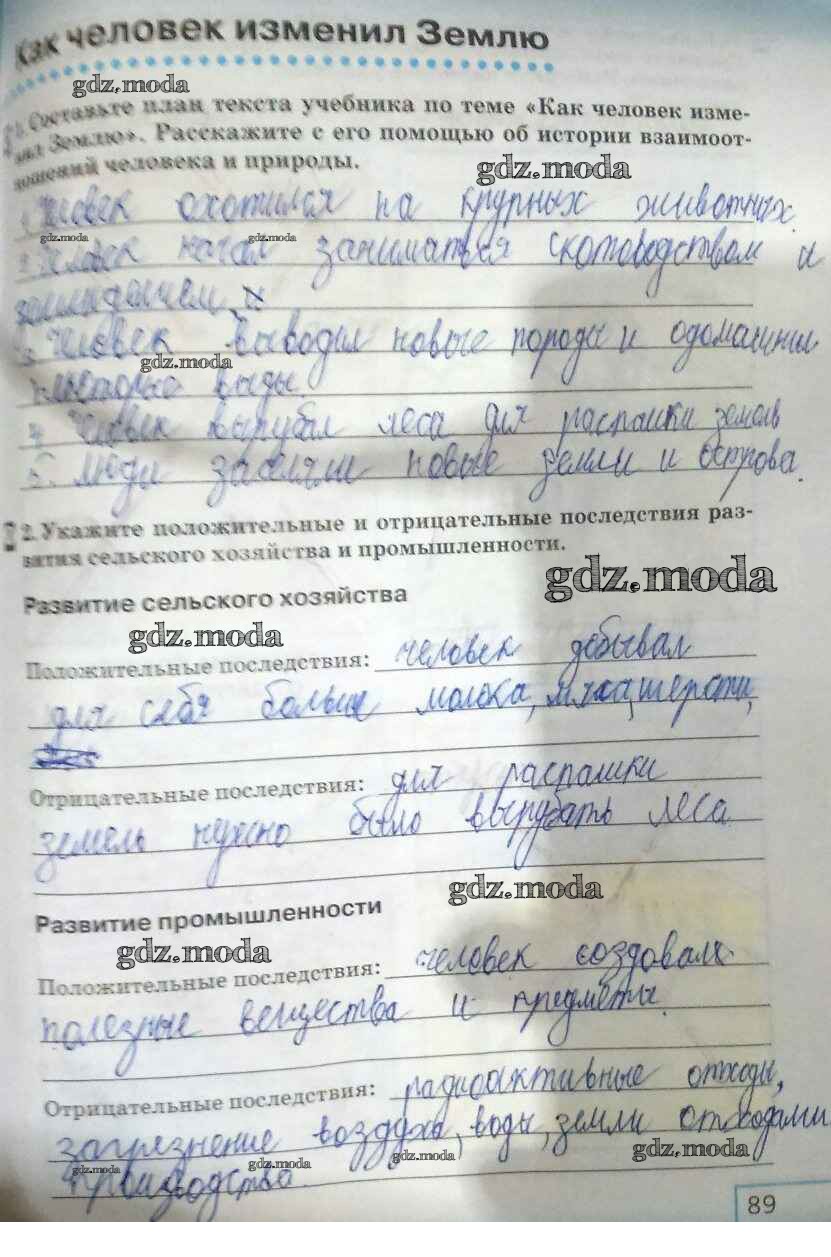 Как человек изменил Землю
gdz.moda
1. Составьте план текста учебника по теме «Как человек изме-
нил Землю». Расскажите с его помощью об истории взаимоот-
ношений человека и природы.
gdz.moda
1. Человек охотился на крупных животных.
gdz.moda gdz.moda
2. Человек начал заниматься скотоводством и
земледелием
3. Человек выводил новые породы и одомашнил
gdz.moda
несколько виды.
4. Человек вырубал леса для распашки земель
5. Люди заселяли новые земли и острова.
2. Укажите положительные и отрицательные последствия раз-
вития сельского хозяйства и промышленности.
gdz.moda
Развитие сельского хозяйства
gdz.moda
Положительные последствия: человек добывал
для себя больше молока, мяса, шерсти,
Отрицательные последствия: для распашки
земель нужно было вырубать леса
gdz.moda
Развитие промышленности
gdz.moda
Положительные последствия: человек создовал
полезные вещества и предметы.
Отрицательные последствия: радиоактивные отходы,
загрязнение воздуха, воды, земли отходами
gdz.moda gdz.moda gdz.moda gdz.moda
производства
89